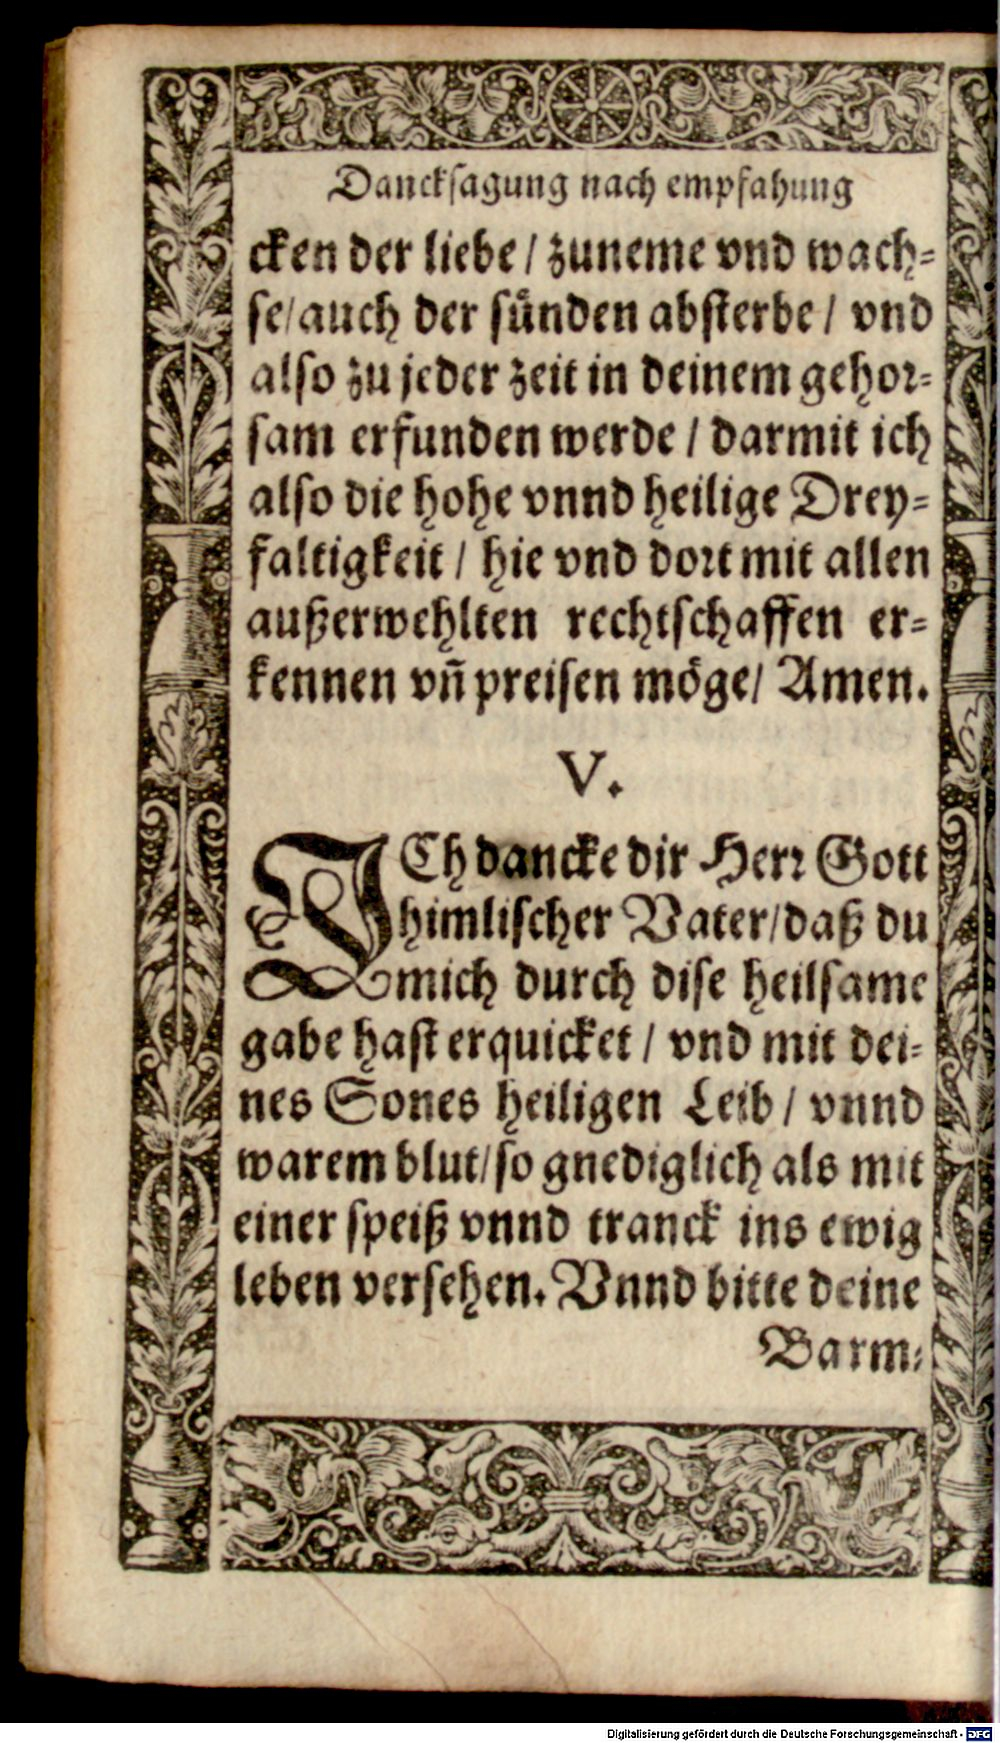 Danckſagung nach empfahung
cken der liebe / zuneme vnd wach-
ſe / auch der ſuͤnden abſterbe / vnd
alſo zu jeder zeit in deinem gehor-
ſam erfunden werde / darmit ich
alſo die hohe vnnd heilige Drey-
faltigkeit / hie vnd dort mit allen
außerwehlten rechtſchaffen er-
kennen vñ preiſen moͤge / Amen.
V.
ICh dancke dir Herr Gott
himliſcher Vater / daß du
mich durch diſe heilſame
gabe haſt erquicket / vnd mit dei-
nes Sones heiligen Leib / vnnd
warem blut / ſo gnediglich als mit
einer ſpeiß vnnd tranck ins ewig
leben verſehen. Vnnd bitte deine
Barm-
Digitalisierung gefördert durch die Deutsche Forschungsgemeinschaft - DFG